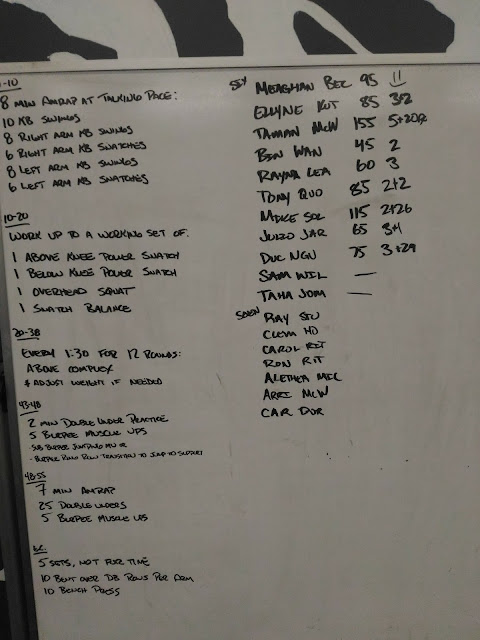 0-10
8 MIN AMRAP AT TALKING PACE:
10 KB SWINGS
8 RIGHT ARM KB SWINGS
6 RIGHT ARM KB SNATCHES
8 LEFT ARM KB SWINGS
6 LEFT ARM KB SNATCHES
10-20
WORK UP TO A WORKING SET OF:
1 ABOVE KNEE POWER SNATCH
1 BELOW KNEE POWER SNATCH
1 OVERHEAD SQUAT
1 SNATCH BALANCE
20-38
EVERY 1:30 FOR 12 ROUNDS:
ABOVE COMPLEX
* ADJUST WEIGHT IF NEEDED
43-48
2 MIN DOUBLE UNDER PRACTICE
5 BURPEE MUSCLE UPS
-SUB BURPEE JUMPING MU OR
-BURPEE RING ROW TRANSITION TO JUMP TO SUPPORT
48-55
7 MIN AMRAP
25 DOUBLE UNDERS
5 BURPEE MUSCLE UPS
EC:
5 SETS, NOT FOR TIME
10 BENT OVER DB ROWS PER ARM
10 BENCH PRESS
SIX MEAGHAN BEC 95 11
ELLYNE KUT 85 3+2
TAMAN MCW 155
BEN WAN 45 2
RAYNA LEA 60 3
TONY QUO 85 2+2
MIKE SOL 115 2+26
JUNZO JAR 65 3+1
DUC NGU 75 3+29
SAM WIL —
TAHA JOM —
RAY SIU
CLEM HO
CAROL RIT
RON RIT
ALETHEA MIC
ARRI MCW
CAR DOR